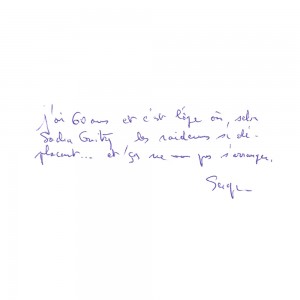 j'ai 60 ans et c'est l'âge où, selon
Sacha Guitry les raideurs se dé-
placent... et ça ne va pas s'arranger.